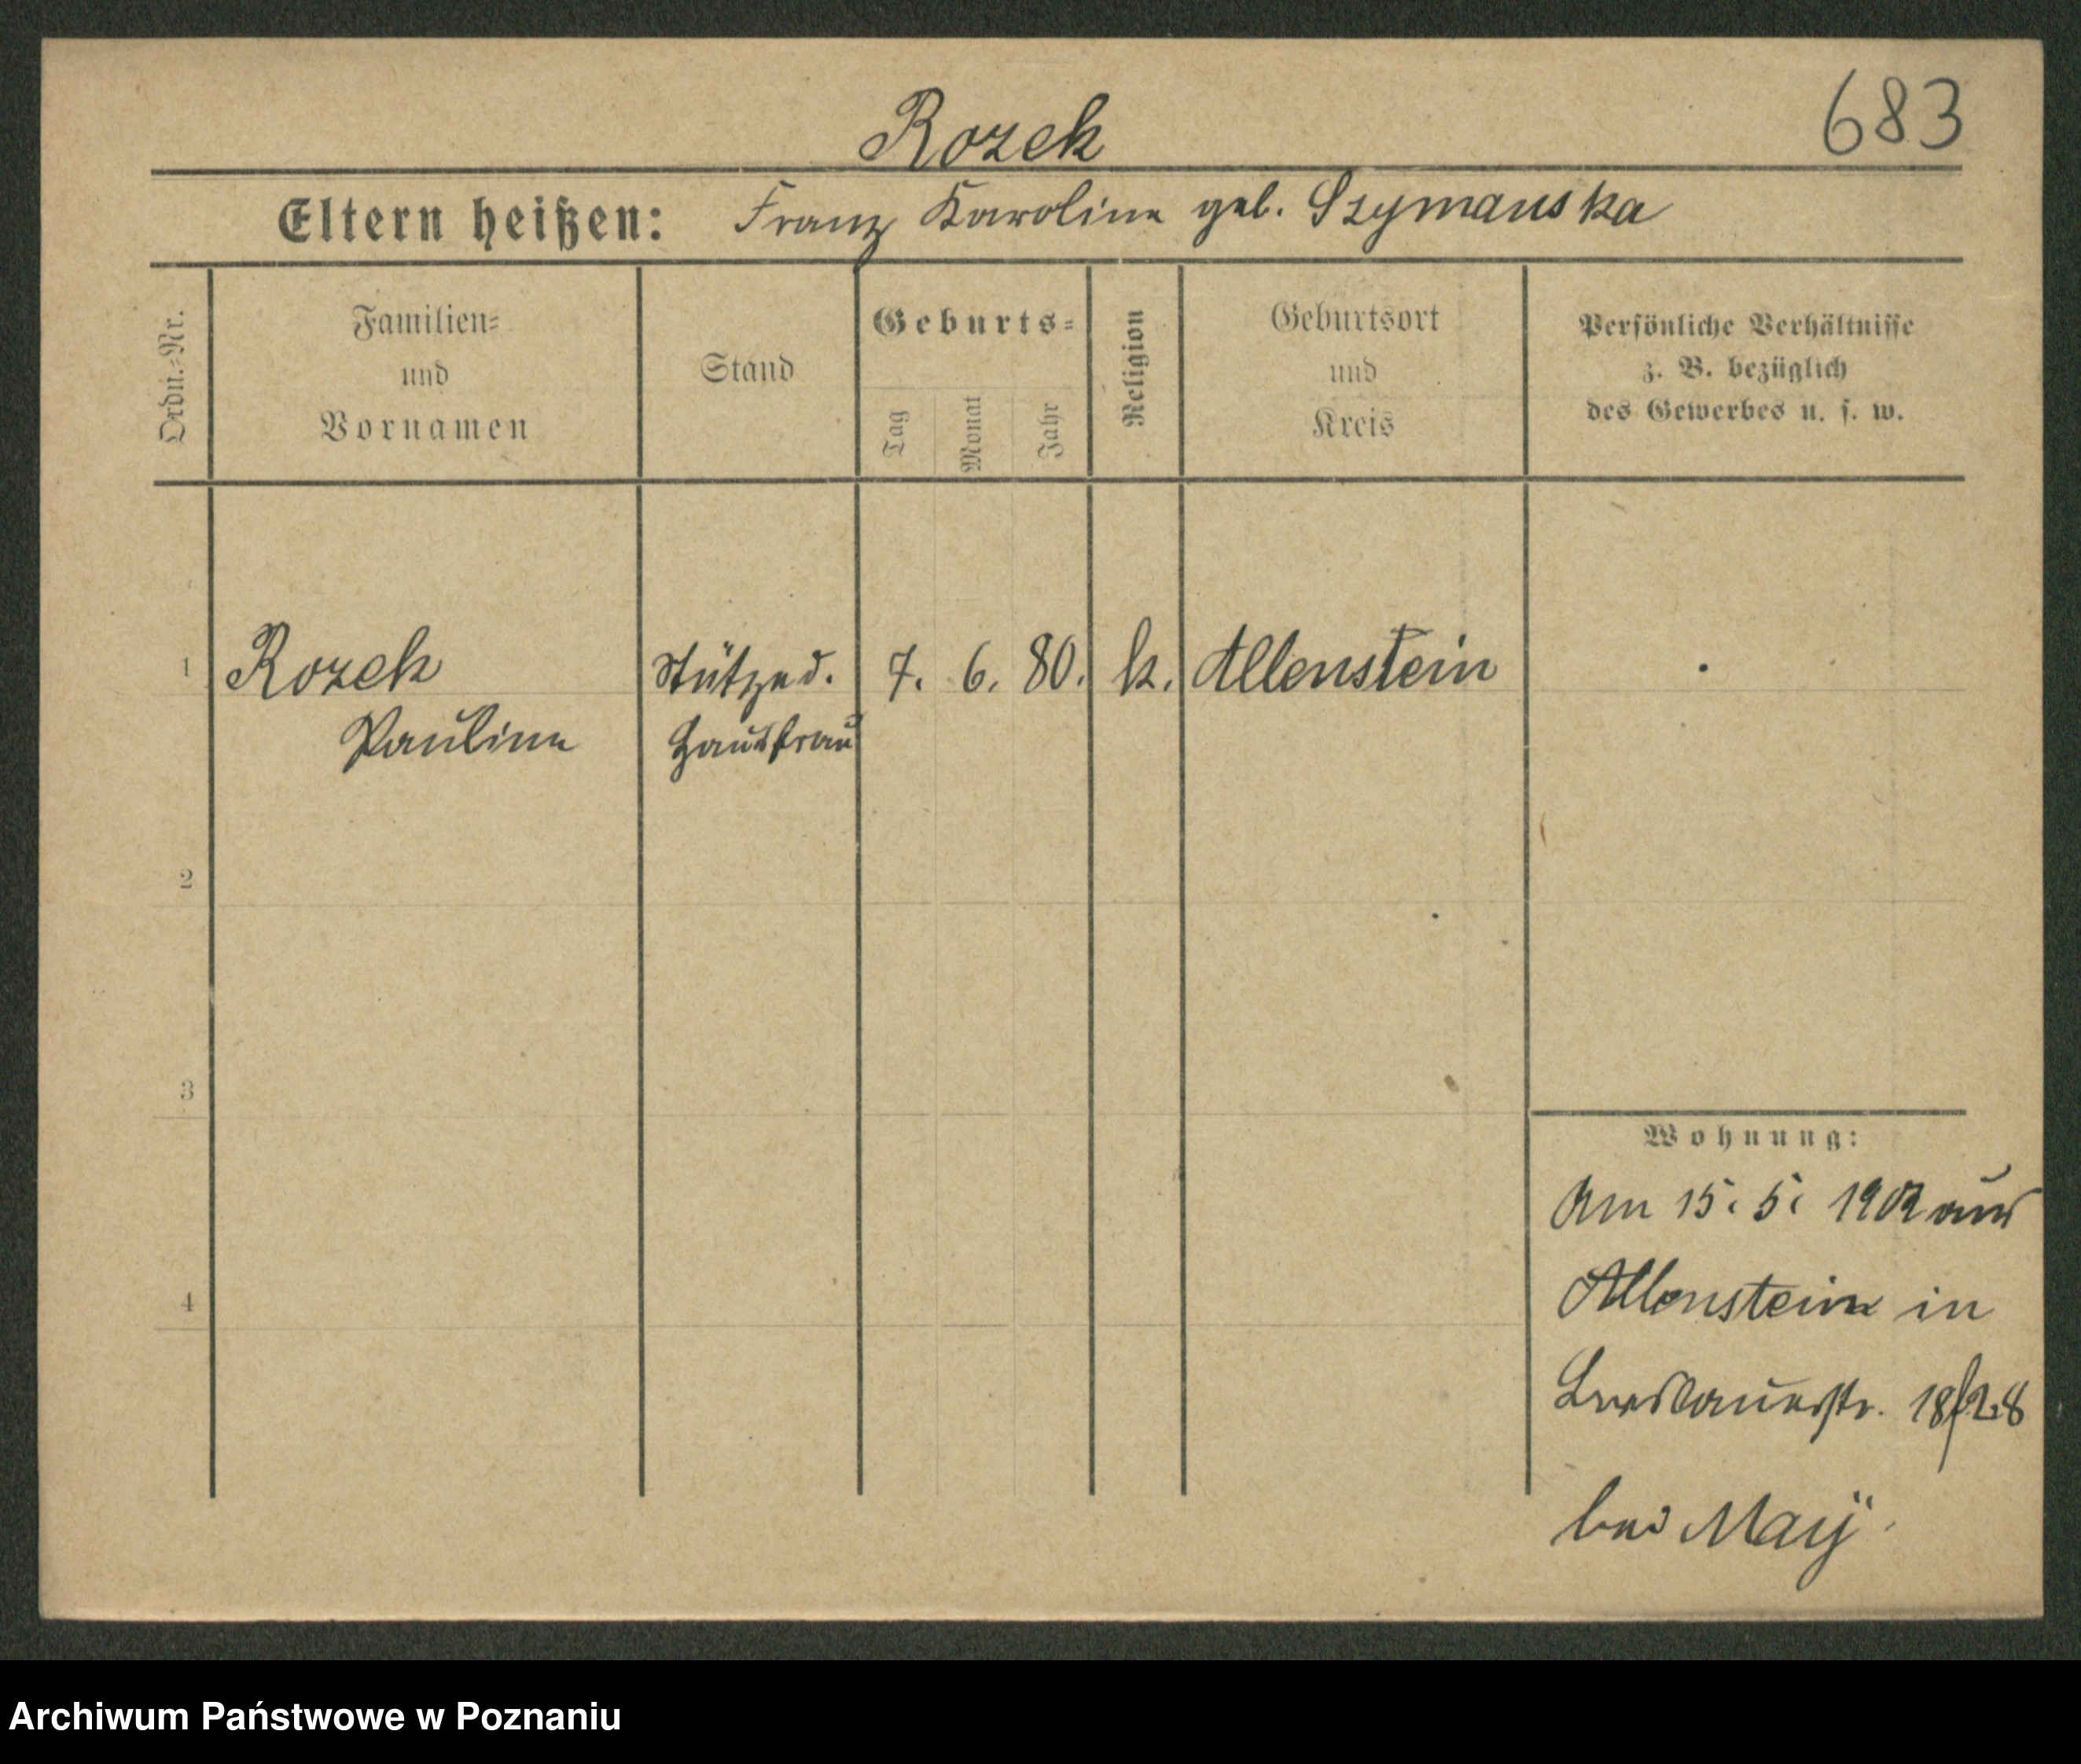 683
Rozek
Eltern heißen: Franz Karoline geb. Szymanska
Ordn.-Nr.
Familien-
und
Vornamen
Stand
Geburts-
Tag
Monat
Jahr
Religion
Geburtsort
und
Kreis
Persönliche Verhältnisse
z. B. bezüglich
des Gewerbes u. s. w.
1 Rozek Stütze d. 7. 6. 80. k. Allenstein
Pauline Hausfrau
2
3
4
Wohnung:
Am 15. 5. 1902 aus
Allenstein in
Breslauerstr. 18/28
bei May.
Archiwum Państwowe w Poznaniu